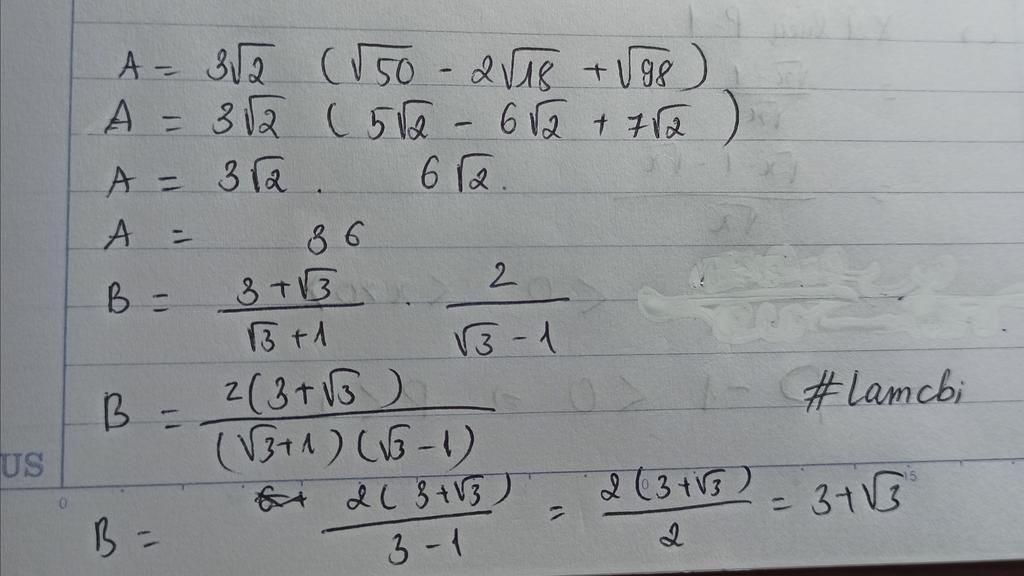 A = 3√2 (√50 - 2√18 + √98)
A = 3√2 (5√2 - 6√2 + 7√2)
A = 3√2 . 6√2.
A = 36
B = (3+√3)/(√3+1) . 2/(√3-1)
B = 2(3+√3)/((√3+1)(√3-1))
#lamcbi
US
0 15
B = 2(3+√3)/(3-1) = 2(3+√3)/2 = 3+√3